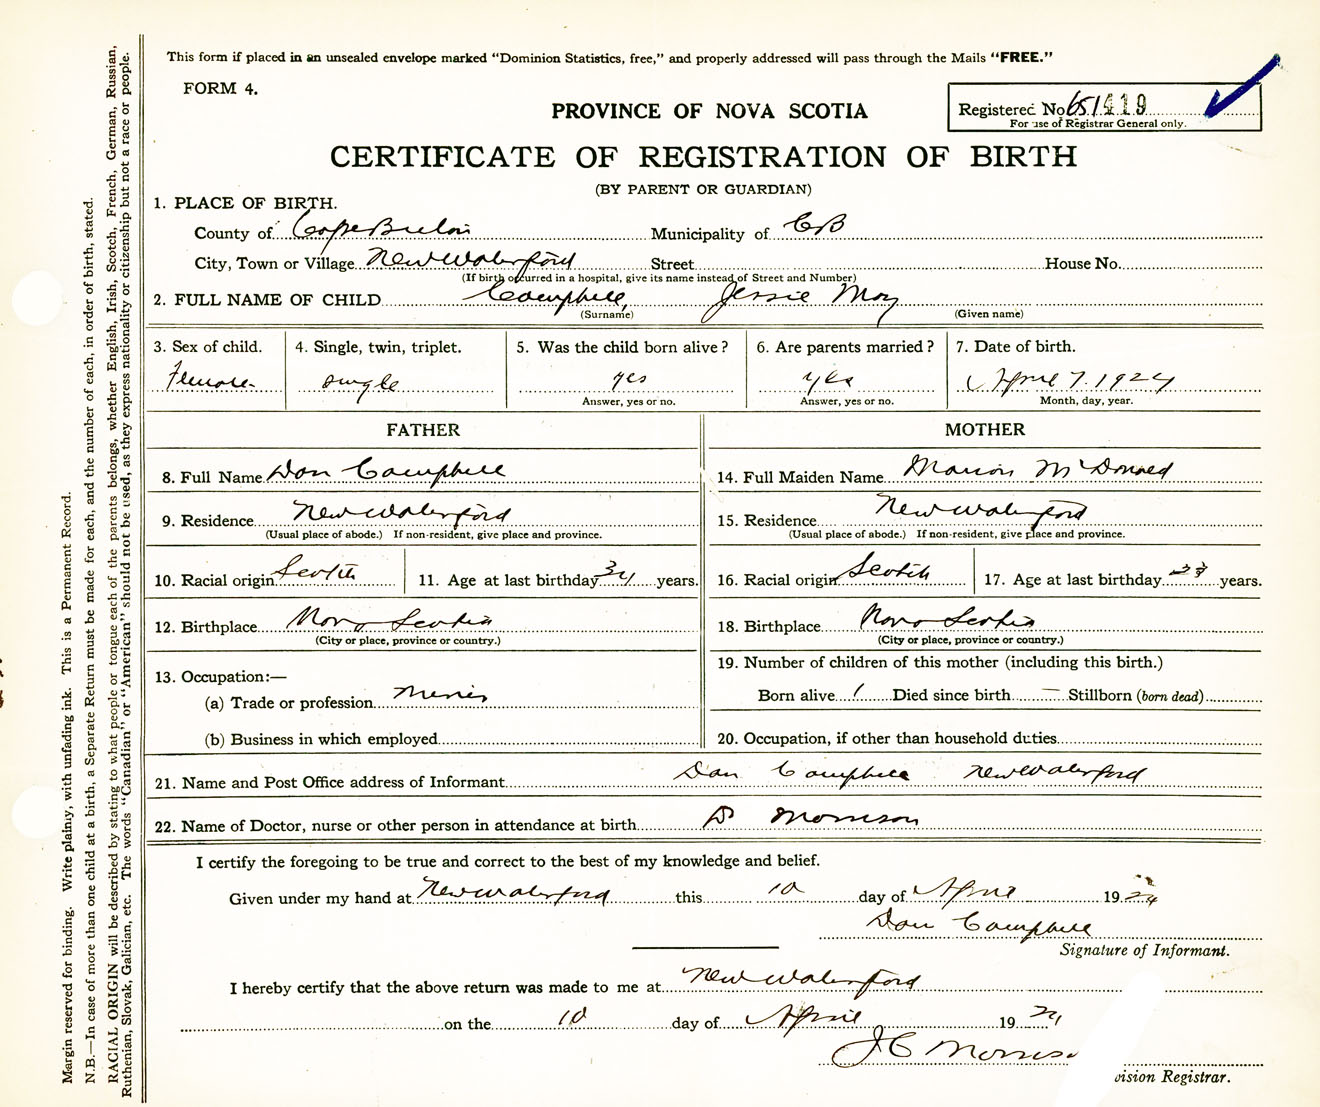 This form if placed in an unsealed envelope marked "Dominion Statistics, free," and properly addressed will pass through the Mails "FREE."
FORM 4.
PROVINCE OF NOVA SCOTIA
Registered No. 651419
For use of Registrar General only.
CERTIFICATE OF REGISTRATION OF BIRTH
(BY PARENT OR GUARDIAN)
1. PLACE OF BIRTH.
County of Cape Breton Municipality of CB
City, Town or Village New Waterford Street House No.
(If birth occurred in a hospital, give its name instead of Street and Number)
2. FULL NAME OF CHILD Campbell, Jessie May
(Surname) (Given name)
3. Sex of child. 4. Single, twin, triplet. 5. Was the child born alive? 6. Are parents married? 7. Date of birth.
Female single yes yes April 7. 1924
Answer, yes or no. Answer, yes or no. Month, day, year.
FATHER MOTHER
8. Full Name Dan Campbell 14. Full Maiden Name Marion McDonald
9. Residence New Waterford 15. Residence New Waterford
(Usual place of abode.) If non-resident, give place and province. (Usual place of abode.) If non-resident, give place and province.
10. Racial origin Scotch 11. Age at last birthday 34 years. 16. Racial origin Scotch 17. Age at last birthday 23 years.
12. Birthplace Nova Scotia 18. Birthplace Nova Scotia
(City or place, province or country.) (City or place, province or country.)
13. Occupation:— 19. Number of children of this mother (including this birth.)
(a) Trade or profession Miner Born alive 1 Died since birth — Stillborn (born dead)
(b) Business in which employed 20. Occupation, if other than household duties
21. Name and Post Office address of Informant Dan Campbell New Waterford
22. Name of Doctor, nurse or other person in attendance at birth Dr Morrison
I certify the foregoing to be true and correct to the best of my knowledge and belief.
Given under my hand at New Waterford this 10 day of April 1924
Dan Campbell
Signature of Informant.
I hereby certify that the above return was made to me at New Waterford
on the 10 day of April 1924
J C Morriso
vision Registrar.
Margin reserved for binding. Write plainly, with unfading ink. This is a Permanent Record.
N.B.—In case of more than one child at a birth, a Separate Return must be made for each, and the number of each, in order of birth, stated.
RACIAL ORIGIN will be described by stating to what people or tongue each of the parents belongs, whether English, Irish, Scotch, French, German, Russian,
Ruthenian, Slovak, Galician, etc. The words "Canadian" or "American" should not be used, as they express nationality or citizenship but not a race or people.